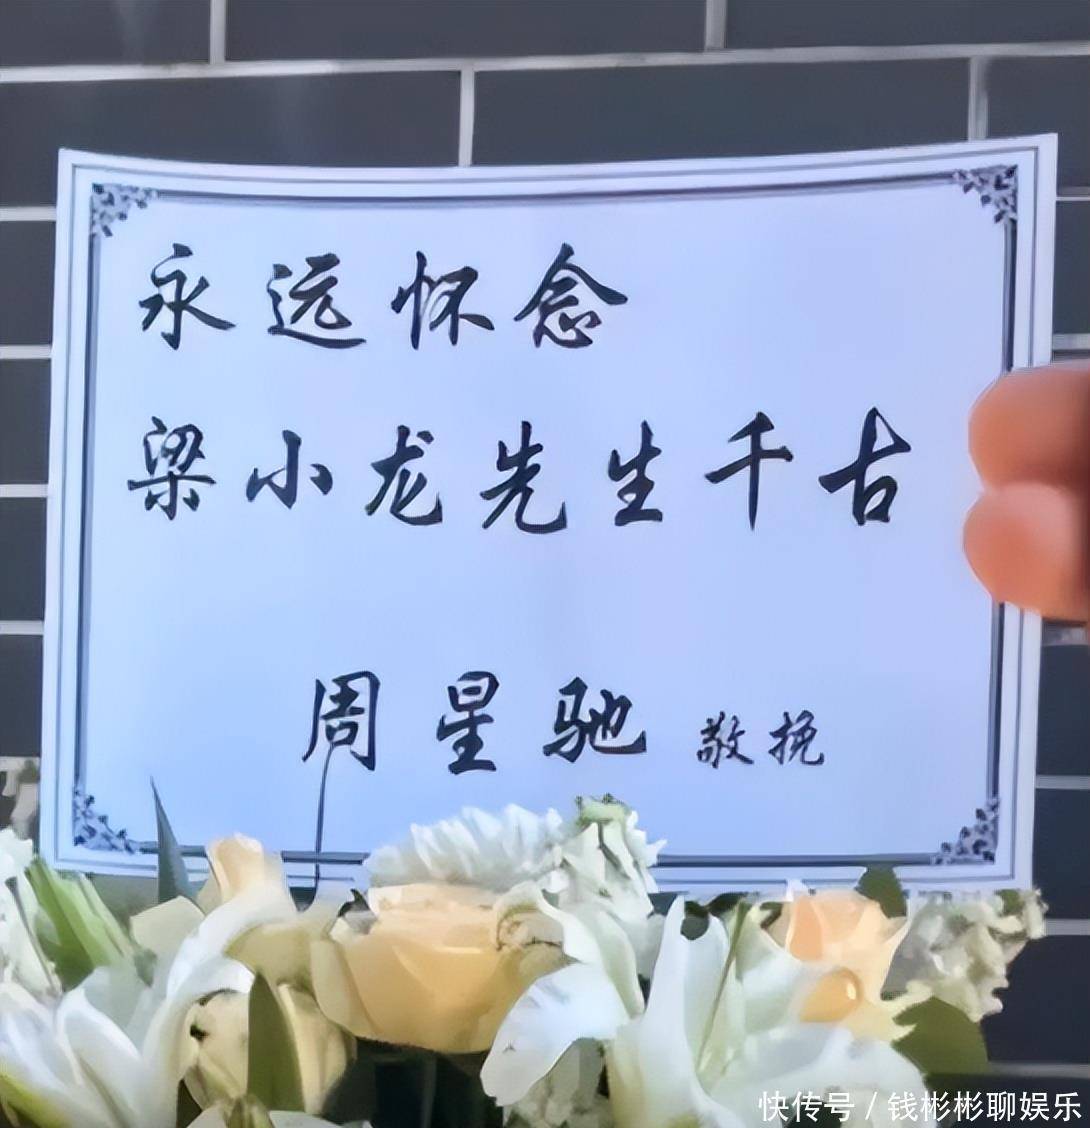 永远怀念
梁小龙先生千古
周星驰 敬挽
快传号 / 钱彬彬聊娱乐